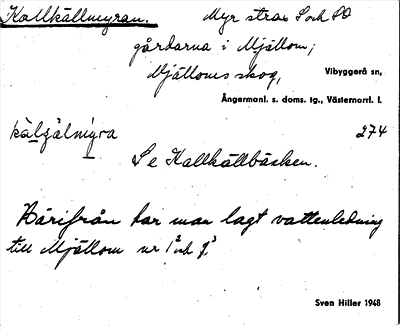 Kallkällmyran. Myr strax S och SO
gårdarna i Mjällom;
Mjälloms skog, Vibyggerå sn,
Ångermanl. s. doms. tg., Västernorrl. l.
kàlɡälmýra 274
Se Kallkällbäcken.
Härifrån har man lagt vattenledning
till Mjällom nr 1² och 9³
Sven Hiller 1948